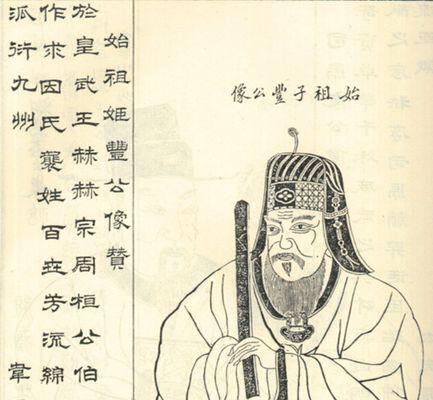 始祖子豐公像
始祖姬豐公像贊
於皇武王赫赫宗周桓公伯
作求因氏襲姓百世芳流綿
派衍九州　韋